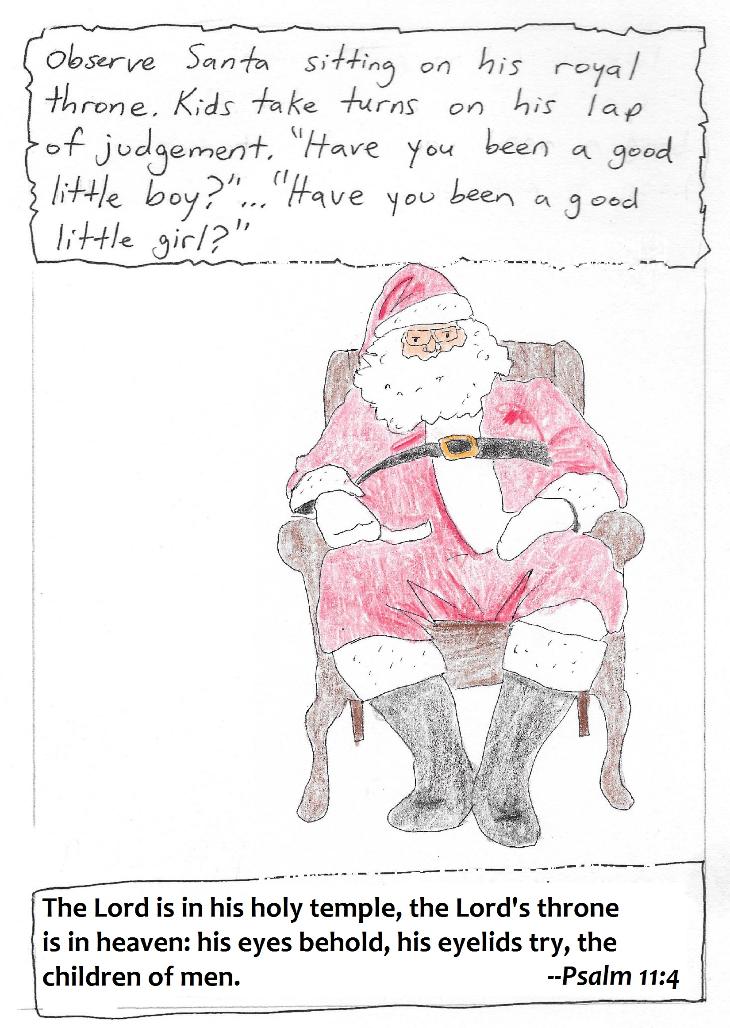 Observe Santa sitting on his royal
throne. Kids take turns on his lap
of judgement. "Have you been a good
little boy?"... "Have you been a good
little girl?"
The Lord is in his holy temple, the Lord's throne
is in heaven: his eyes behold, his eyelids try, the
children of men. --Psalm 11:4